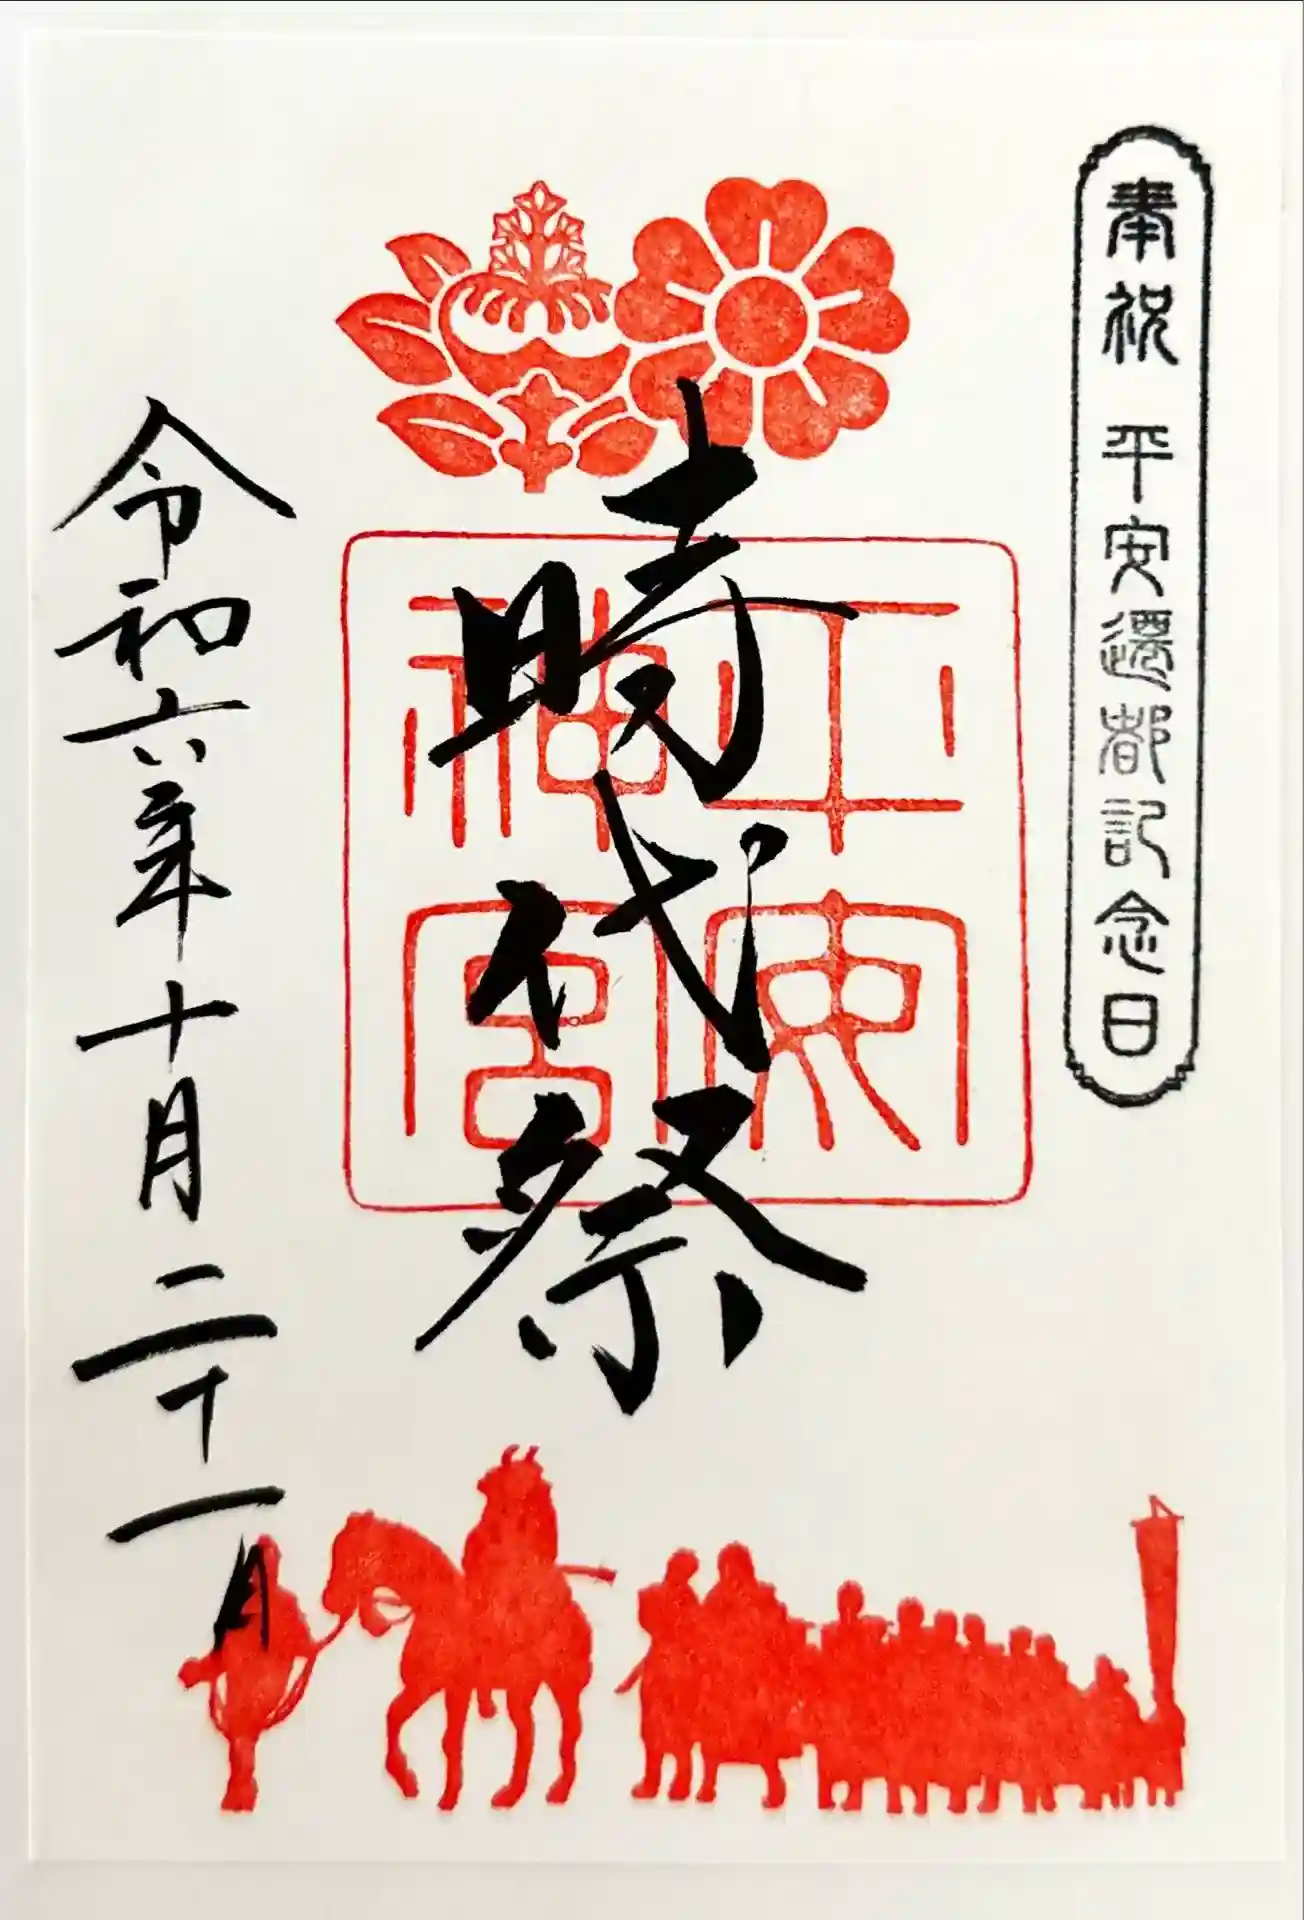 奉祝 平安遷都記念日
平安神宮
時代祭
令和六年十月二十一日